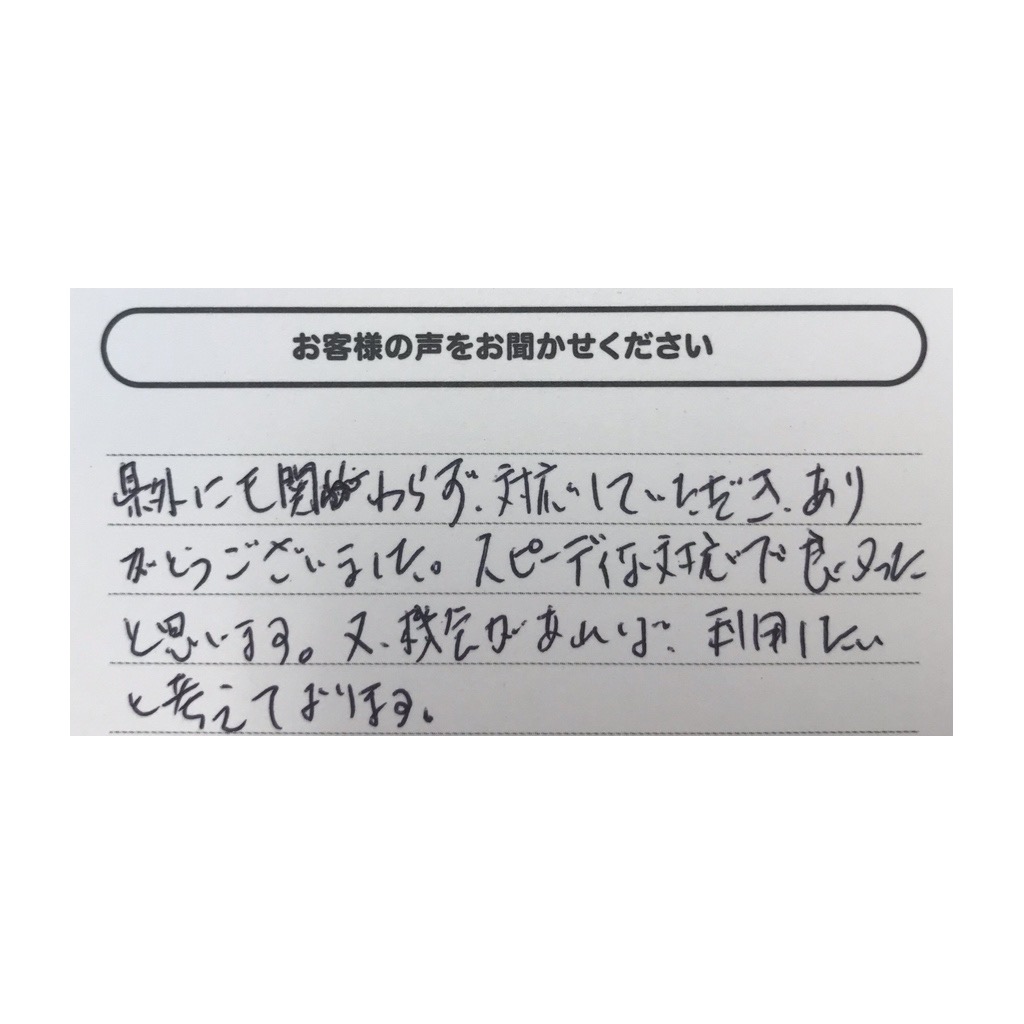 お客様の声をお聞かせください
県外にも関わらず、対応していただき、あり
がとうございました。スピーディな対応で良かった
と思います。又、機会があれば、利用したい
と考えております。